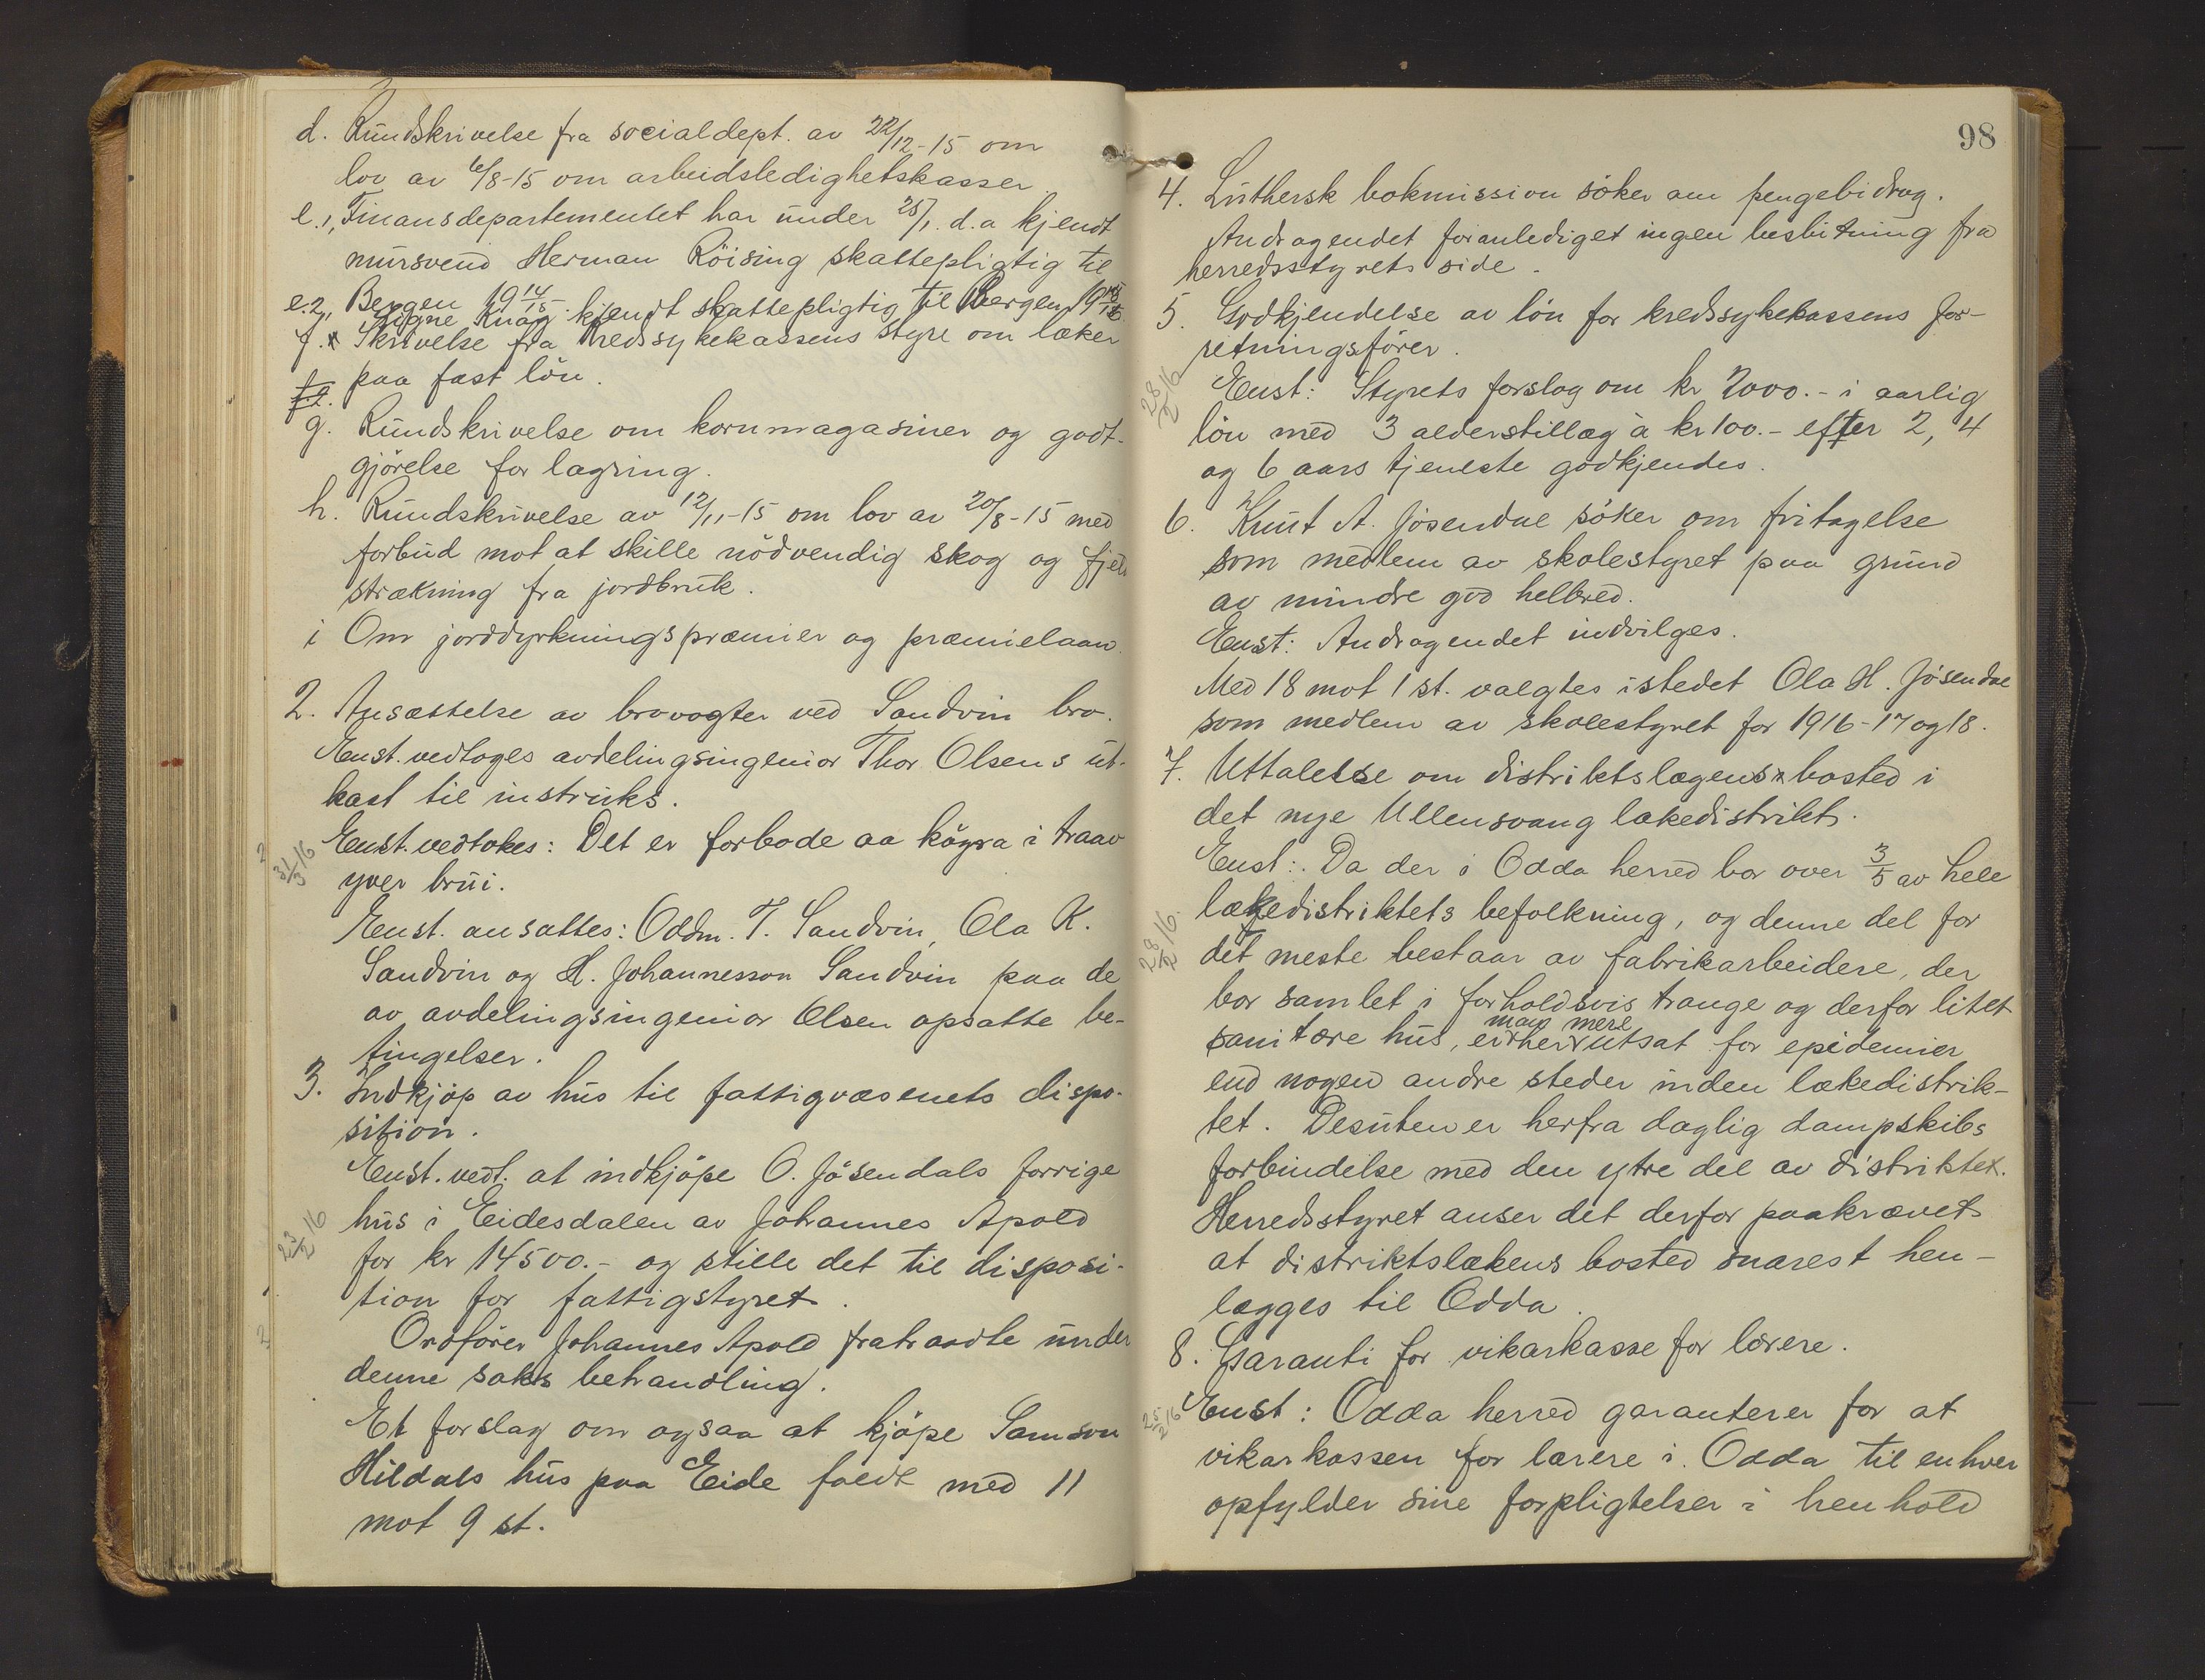 d. Rundskrivelse fra socialdept. av 22/12-15 om
lov av 6/8-15 om arbeidsledighetskasser.
e.1, Finansdepartementet har under 25/1. d.a kjendt
mursvend Herman Röising skattepligtig til
Bergen 19 14/15
e.2, Signe Knag kjendt skattepligtig til Bergen
f. Skrivelse fra Kredssykekassens styre om læker
paa fast lön.
g. Rundskrivelse om kornmagasiner og godt-
gjörelse for lagring.
h. Rundskrivelse av 12/11-15 om lov av 20/8-15 med
forbud mot at skille nödvendig skog og fjeld
strækning fra jordbruk.
i Om jorddyrkningspræmier og præmielaan.
2. Ansættelse av brovogter ved Sandvin bro.
Enst. vedtoges avdelingsingeniör Thor Olsens ut-
kast til instruks.
31/3 16
Enst. vedtokes: Det er forbode aa köyra i traav
yver brui.
Enst. ansattes: Oddm. T. Sandvin, Ola K.
Sandvin og H. Johannesson Sandvin paa de
av avdelingsingeniör Olsen opsatte be-
tingelser.
3. Indkjöp av hus til fattigvæsenets dispo-
sition.
Enst. vedt. at indkjöpe O. Jösendals forrige
23/2 16
hus i Eidesdalen av Johannes Apold
for kr 14500.- og stille det til disposi-
tion for fattigstyret.
Ordförer Johannes Apold fratraadte under
denne saks behandling.
Et forslag om ogsaa at kjöpe Samson
Hildals hus paa Eide faldt med 11
mot 9 st.
98
4. Luthersk bokmission söker om pengebidrag.
Andragendet foranlediget ingen beslutning fra
herredsstyrets side.
5. Godkjendelse av lön for kredssykekassens for-
retningsförer.
28/2 16
Enst: Styrets forslag om kr 2000.- i aarlig
lön med 3 alderstillæg à kr 100.- efter 2, 4
og 6 aars tjeneste godkjendes.
6. Knut A. Jösendal söker om fritagelse
som medlem av skolestyret paa grund
av mindre god helbred.
Enst: Andragendet indvilges.
Med 18 mot 1 st. valgtes istedet Ola H. Jösendal
som medlem av skolestyret for 1916-17 og 18.
7. Uttalelse om distriktslægens bosted i
det nye Ullensvang lækedistrikt.
Enst: Da der i Odda herred bor over 3/5 av hele
lækedistriktets befolkning, og denne del for
28/2 16.
det meste bestaar av fabrikarbeidere, der
bor samlet i forholdsvis trange og derfor litet
sanitære hus, er man her mere utsat for epidemier
end nogen andre steder inden lækedistrik-
tet. Desuten er herfra daglig dampskibs
forbindelse med den ytre del av distriktet.
Herredsstyret anser det derfor paakrævet
at distriktslækens bosted snarest hen-
lægges til Odda.
8. Garanti for vikarkasse for lærere.
25/2 16
Enst: Odda herred garanterer for at
vikarkassen for lærere i Odda til enhver
opfylder sine forpligtelser i henhold